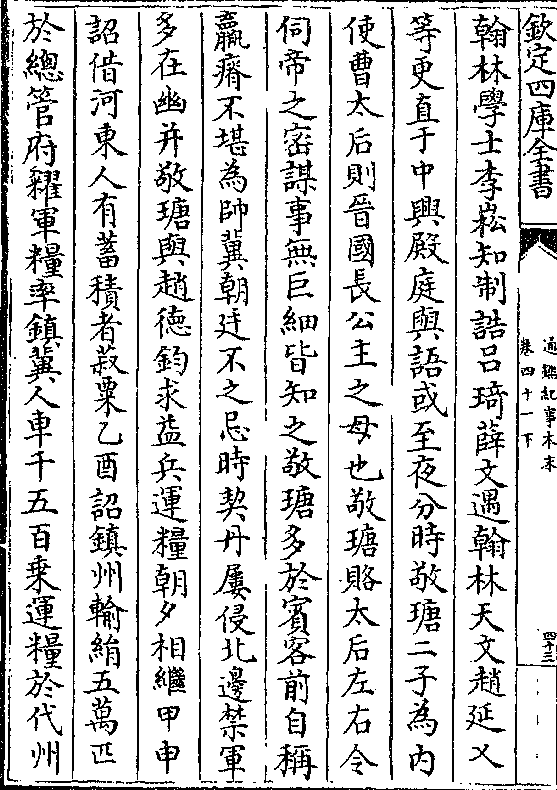 欽定四庫全書
通鑑紀事本末
卷四十一下
四十三
翰林學士李崧知制誥吕琦薛文遇翰林天文趙延乂
等更直于中興殿庭與語或至夜分時敬瑭二子為内
使曹太后則晉國長公主之母也敬瑭賂太后左右令
伺帝之密謀事無巨細皆知之敬瑭多於賓客前自稱
羸瘠不堪為帥冀朝廷不之忌時契丹屢侵北邊禁軍
多在幽并敬瑭與趙德鈞求益兵運糧朝夕相繼甲申
詔借河東人有蓄積者菽粟乙酉詔鎮州輸絹五萬匹
於總管府糴軍糧率鎮冀人車千五百乗運糧於代州